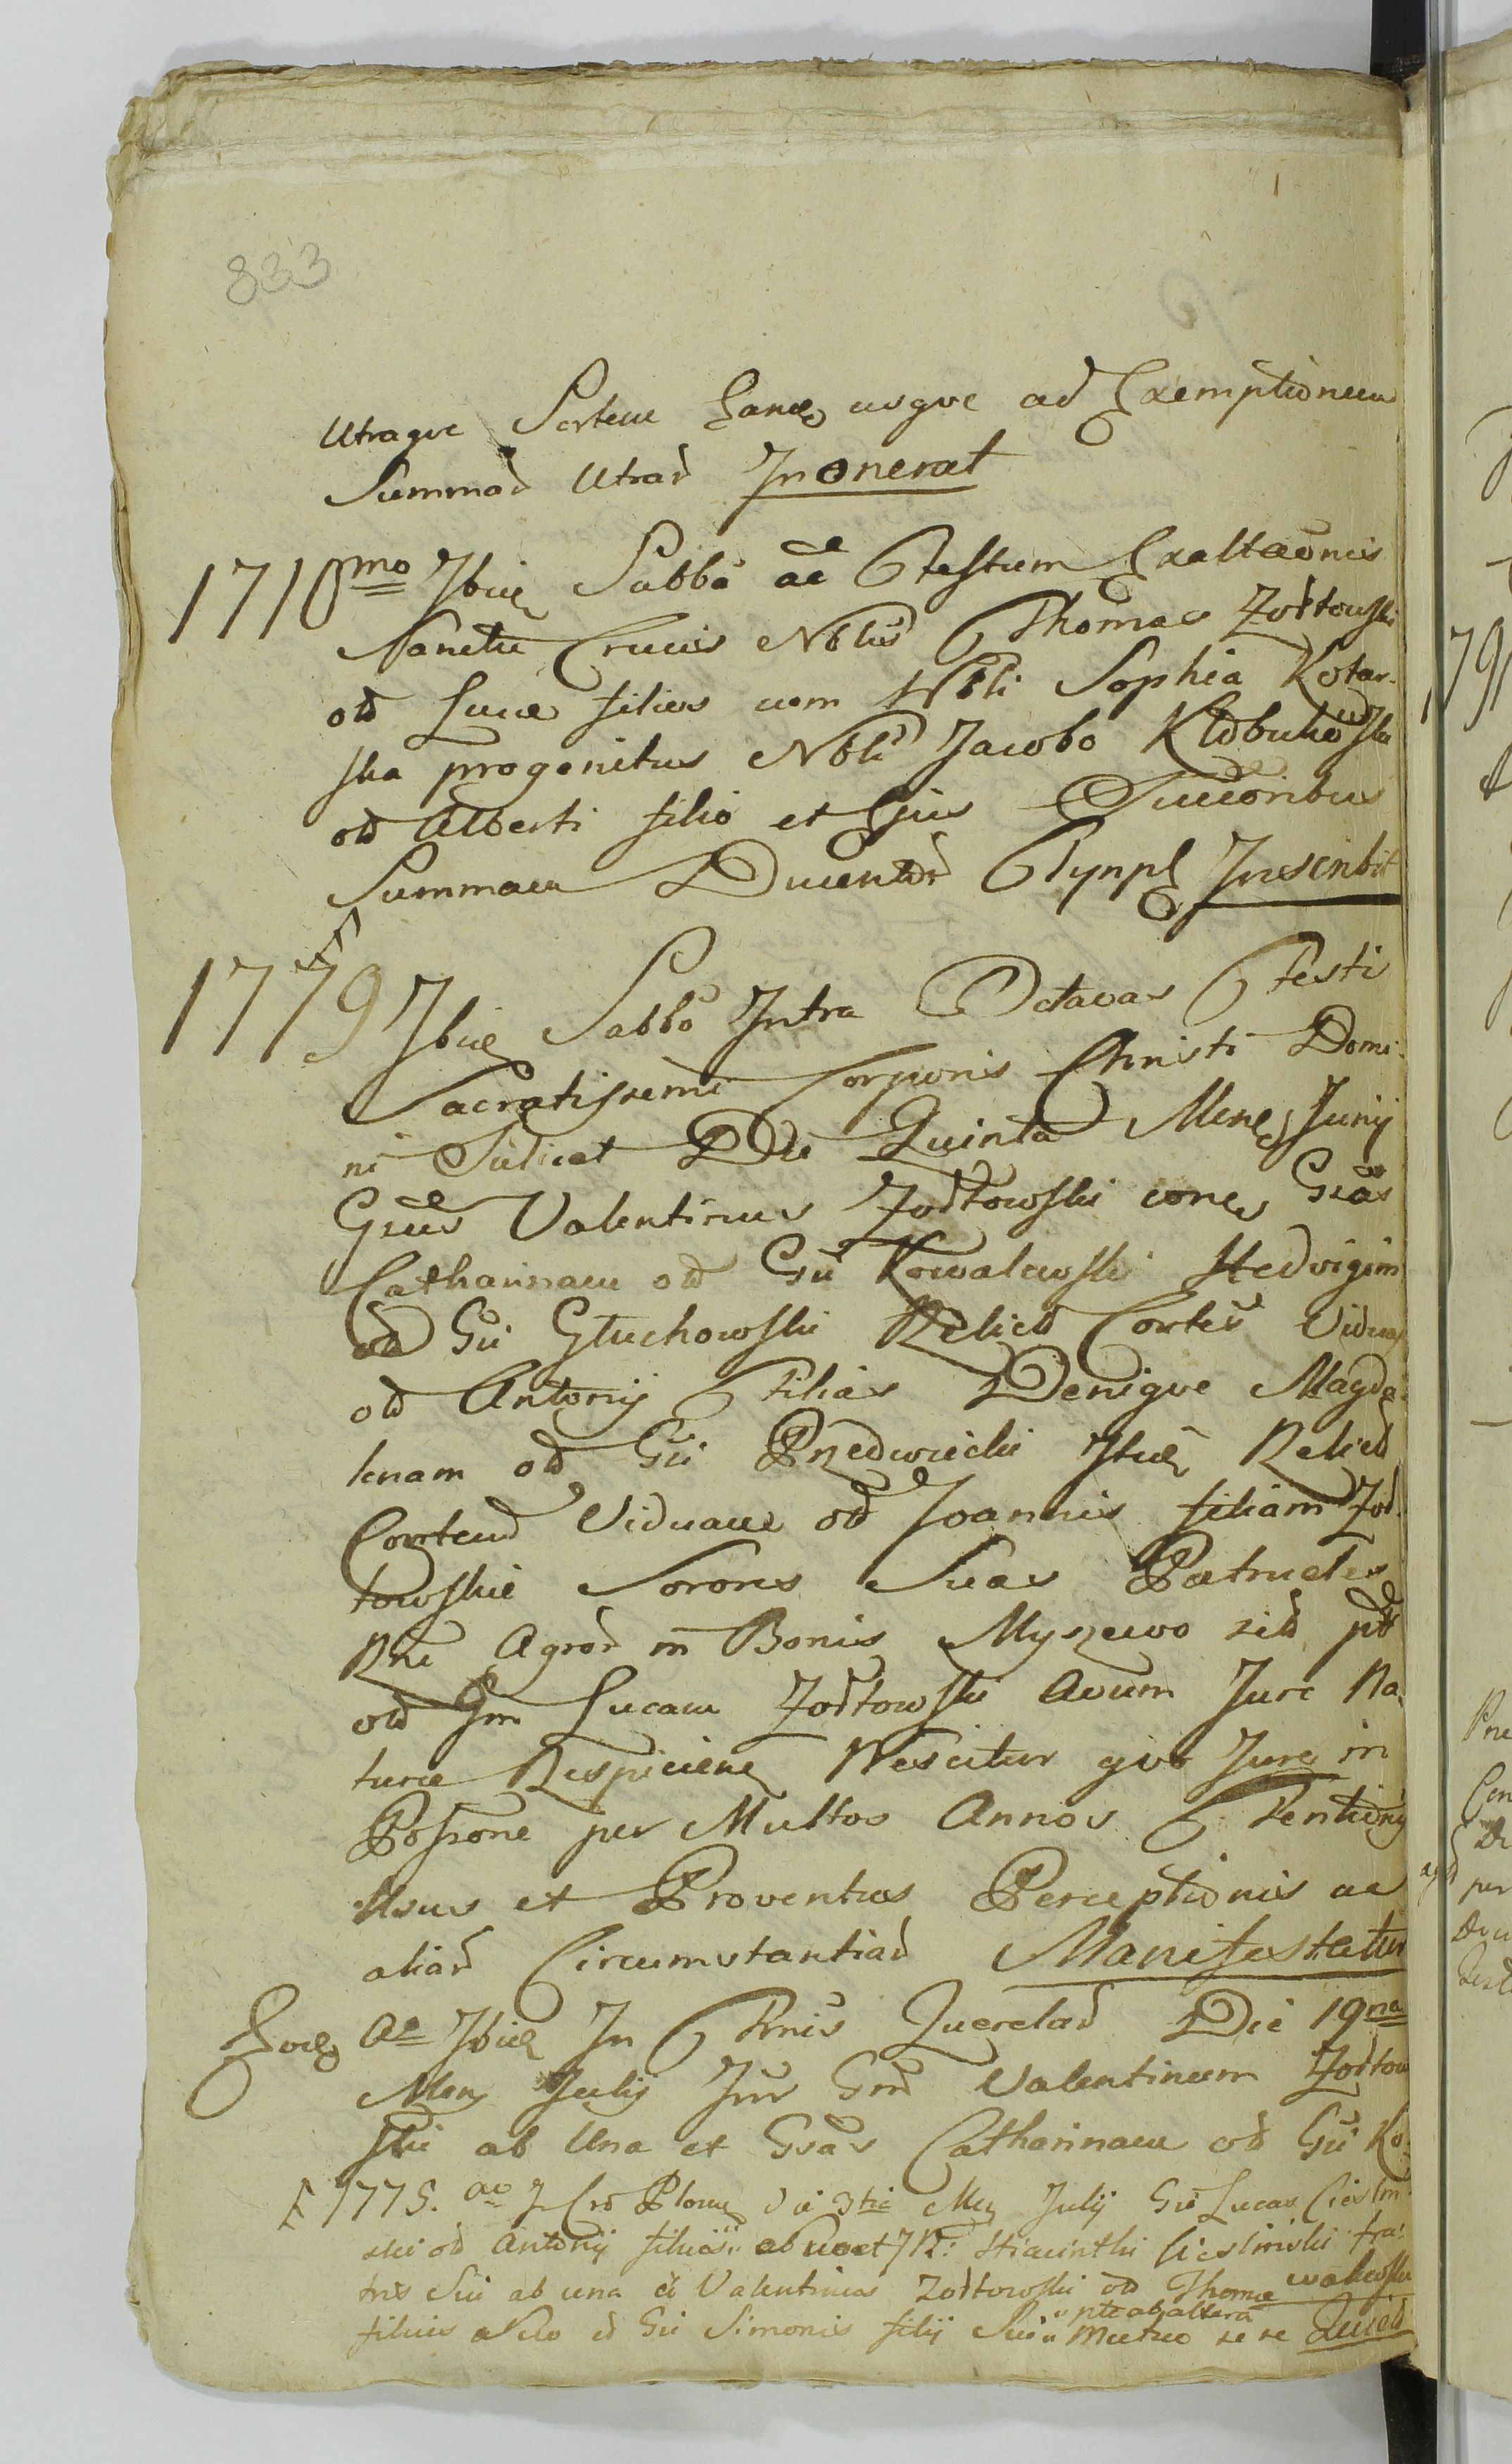 833
Utraque Sortem hanc usque ad Exemptionem
Summae Utrae Inonerat
1710mo Ibid Sabbo ae Festum Exaltaonis
Sanctae Crucis Nblis Thomas Żołtowski
od Lucae filius cum Nbli Sophia Kotar-
ska progenitus Nbli Jacobo Kłobukowski
od Alberti filio et Ejus Succoribus
Summam Ducentor Flynpl Inscribit
1779 Ibid Sabbo Intra Octavas Festi
Sacratissimi Corporis Christi Domi-
ni Scilicet Die Quinta Mens Junij
Gsus Valentinus Żołtowski cone Gsas
Catharinam od Gsi Kowalewski Hedvigim
od Gsi Głuchowski Relict Contes Viduas
od Antonij Filias Denique Magda-
lenam od Gsi Przedwiecki Itid Relict
Contem Viduam od Joannis filiam Żoł-
towskie Sorores Suas Patrueles
Rne Agror in Bonis Myszewo sit ptt
od Gm Lucam Żołtowski Avum Jure Na-
turae Respicien Nescitur quo Jure in
Possone per Multos Annos Tention
Usus et Proventus Perceptionis ac
aliar Circumstantiar Manifestatur
Eod Ao Ibid In Trnis Querelar Die 19na
Mens Julij Intr Gsm Valentinum Żołtow
ski ab Una et Gsas Catharinam od Gsi Ko-
1775. ao I Cro Plocen Die 3tia Mens Julij Gsus Lucas Cieslin
ski od Antonij filius suo et N: Hiacinthi Cieslinski fra-
tris Sui ab una et Valentinus Żołtowski od Thomae walewski
filius suo et Gsi Simonis filij Sui pte ab altera Mutuo se se Quiet